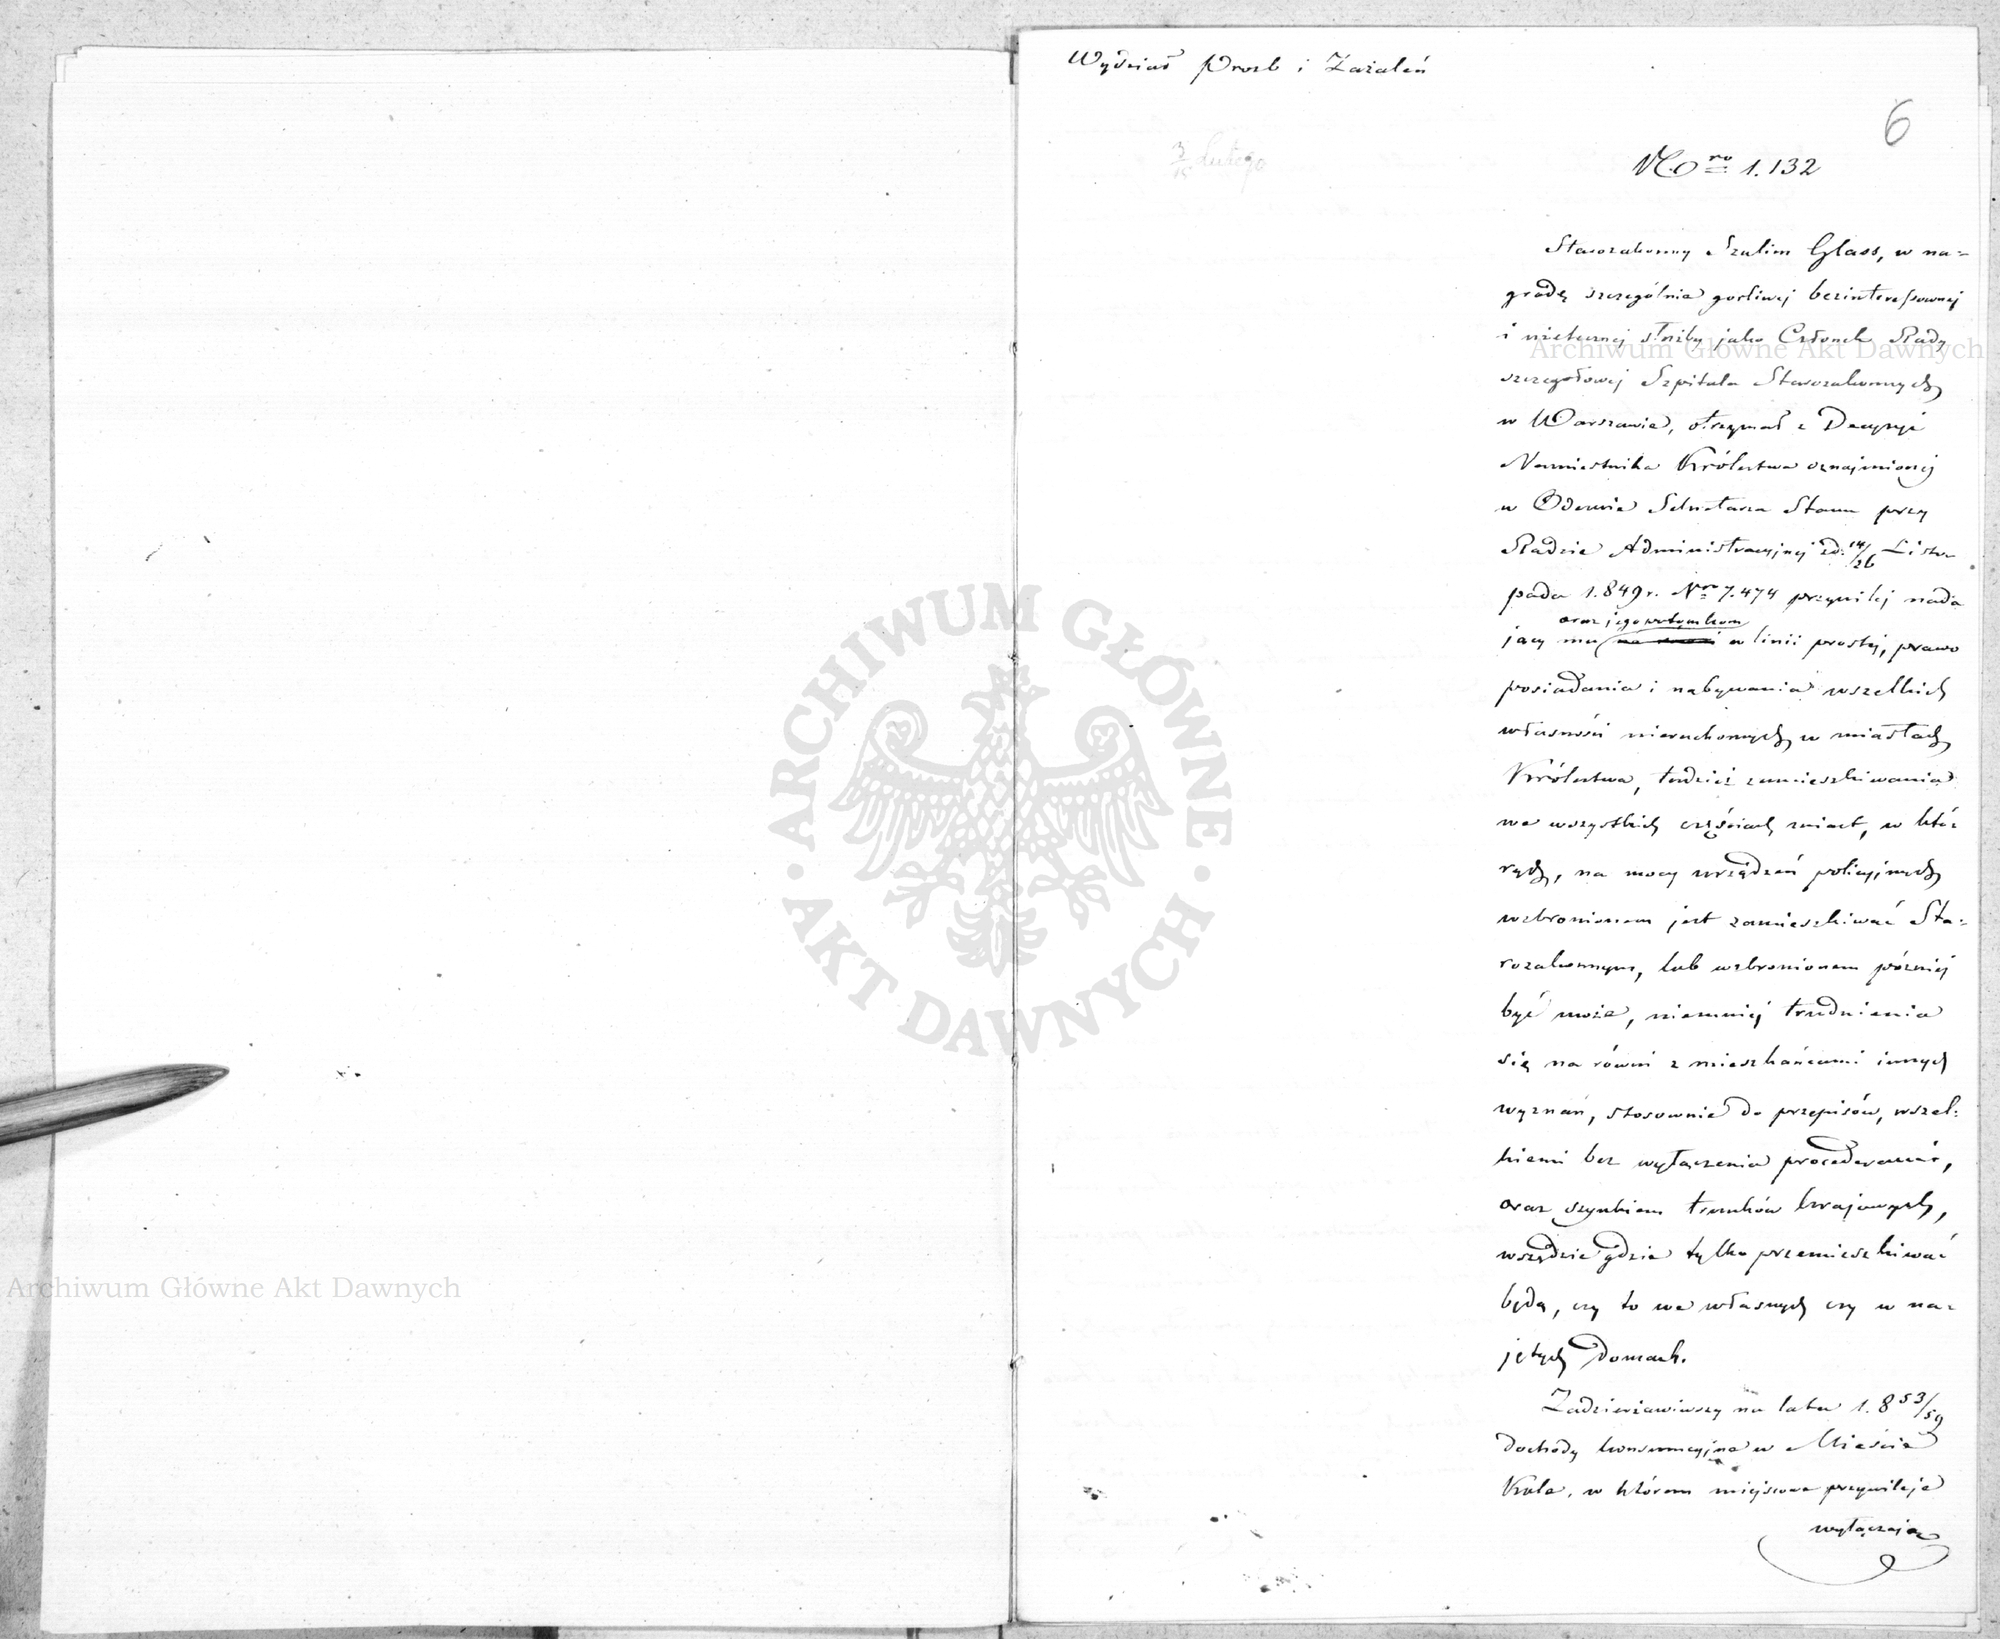 Wydział Prozb i Zażaleń
6
3/15 Lutego
Nro 1.132
Starozakonny Szulim Glass, w na=
grodę szczególnie gorliwej bezinteressownej
i użytecznej służby jako Członek Rady
szczegołowej Szpitala Starozakonnych
w Warszawie, otrzymał z Decyzyi
Namiestnika Królestwa oznajmionej
w Odezwie Sekretarza Stanu przy
Radzie Administracyjnej z d. 14/26 Listo-
pada 1.849 r. Nro 7.474 przywilej nada
oraz jego potomkom
jący mu w linii prostej, prawo
posiadania i nabywania wszelkich
własności nieruchomych w miastach
Królestwa, tudzież zamieszkiwania
we wszystkich częściach miast, w któ-
rych, na mocy urządzeń policyjnych
wzbronionem jest zamieszkiwać Sta-
rozakonnym, lub wzbronionem później
być może, niemniej trudnienia
się na równi z mieszkańcami innych
wyznań, stosownie do przepisów, wszel-
kiemi bez wyłączenia procederami,
oraz szynkiem trunków krajowych,
wszędzie gdzie tylko przemieszkiwać
będą, czy to we własnych czy w na-
jętych Domach.
Zadzierżawiwszy na lata 1.853/59
dochody konsumcyjne w Mieście
Kole, w którem miejscowe przywileje
wyłączają
ARCHIWUM GŁÓWNE AKT DAWNYCH
Archiwum Główne Akt Dawnych
Archiwum Główne Akt Dawnych